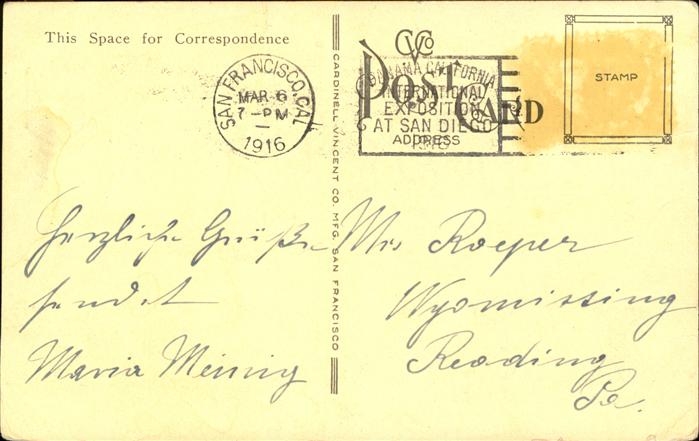 This Space for Correspondence
SAN FRANCISCO, CAL.
MAR 6
7-PM
1916
CARDINELL VINCENT CO. MFG. SAN FRANCISCO
CVCo
POST CARD
PANAMA CALIFORNIA
INTERNATIONAL
EXPOSITION
AT SAN DIEGO
1916
ADDRESS
STAMP
Herzliche Grüße
sendet
Maria Meinig
Mrs Roeper
Wyomissing
Reading
Pa.